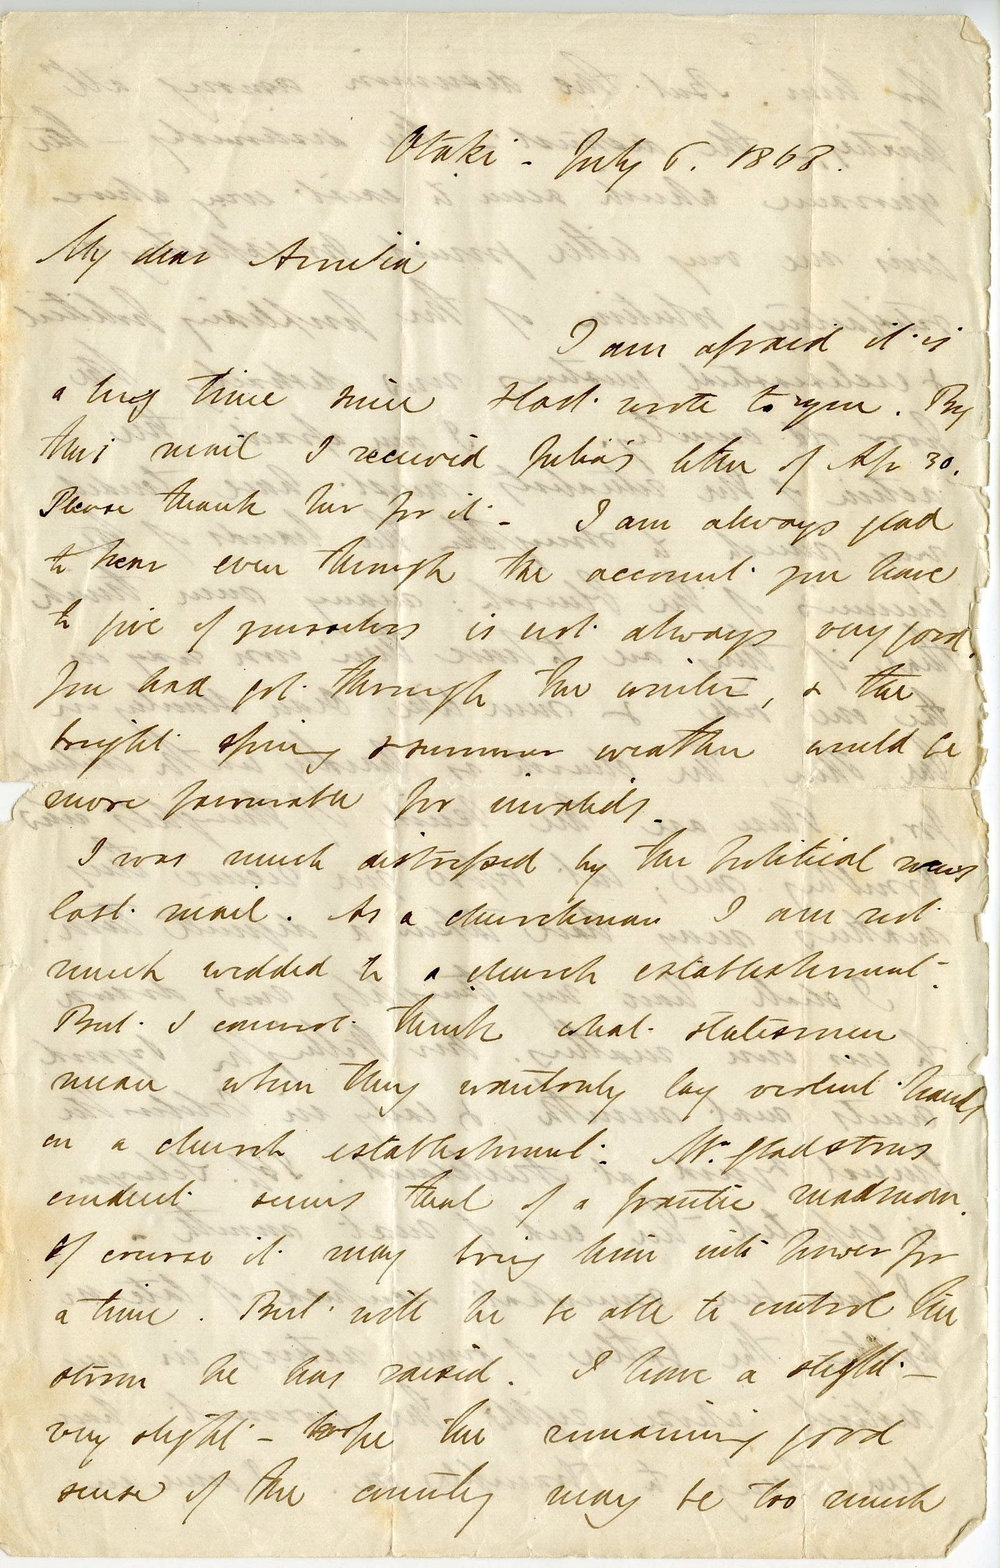 Otaki - July 6. 1868.
My dear Amelia
I am afraid it is
a long time since I last wrote to you. By
this mail I received Julia's letter of Ap 30.
Please thank her for it - I am always glad
to hear even though the account you have
to give of yourselves is not always very good.
You had got through the winter, & the
bright spring & summer weather would be
more favourable for invalids.
I was much distressed by the political news
last mail. As a churchman I am not
much wedded to a church establishment -
But I cannot think what statesmen
mean when they wantonly lay violent hands
on a church establishment. Mr. Gladstone's
conduct seems that of a frantic madman.
Of course it may bring him into power for
a time. But will he be able to control the
storm he has raised. I have a slight -
very slight - hope the remaining good
sense of the country may be too much